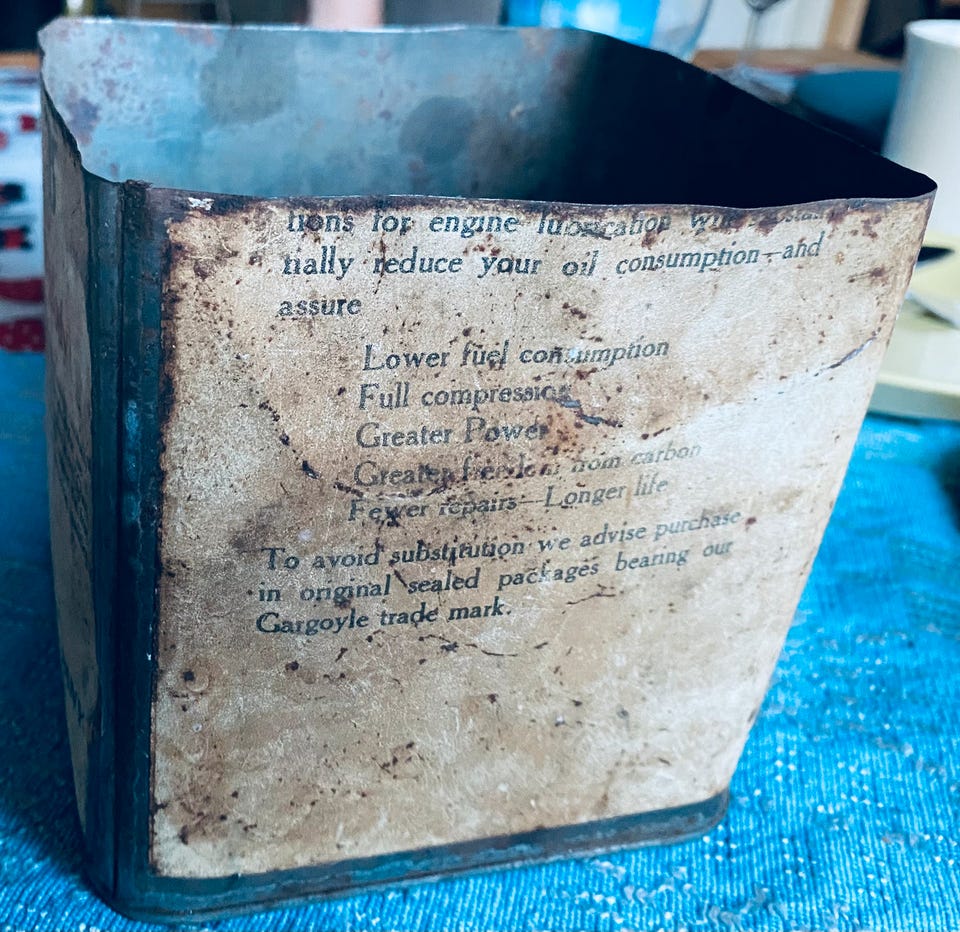 tions for engine lubrication will
tially reduce your oil consumption—and
assure
Lower fuel consumption
Full compression
Greater Power
Greater freedom from carbon
Fewer repairs—Longer life
To avoid substitution we advise purchase
in original sealed packages bearing our
Gargoyle trade mark.